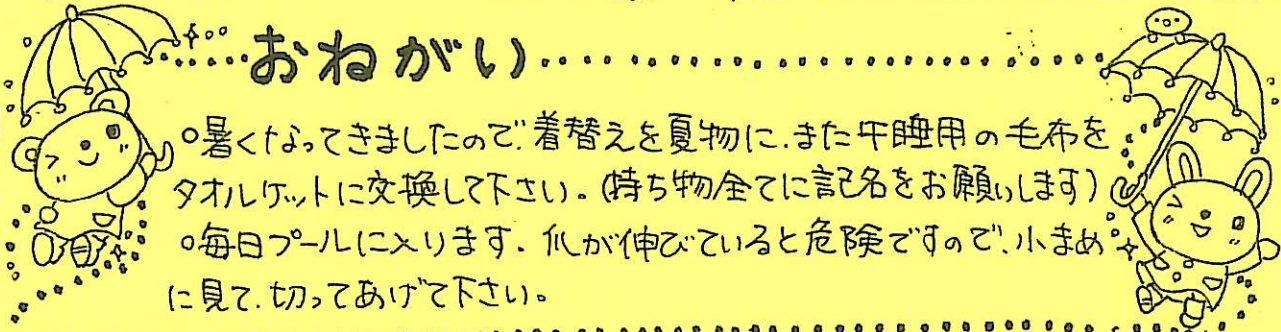 おねがい
○暑くなってきましたので、着替えを夏物に、また午睡用の毛布を
タオルケットに交換して下さい。(持ち物全てに記名をお願いします)
○毎日プールに入ります。爪が伸びていると危険ですので、小まめ
に見て、切ってあげて下さい。